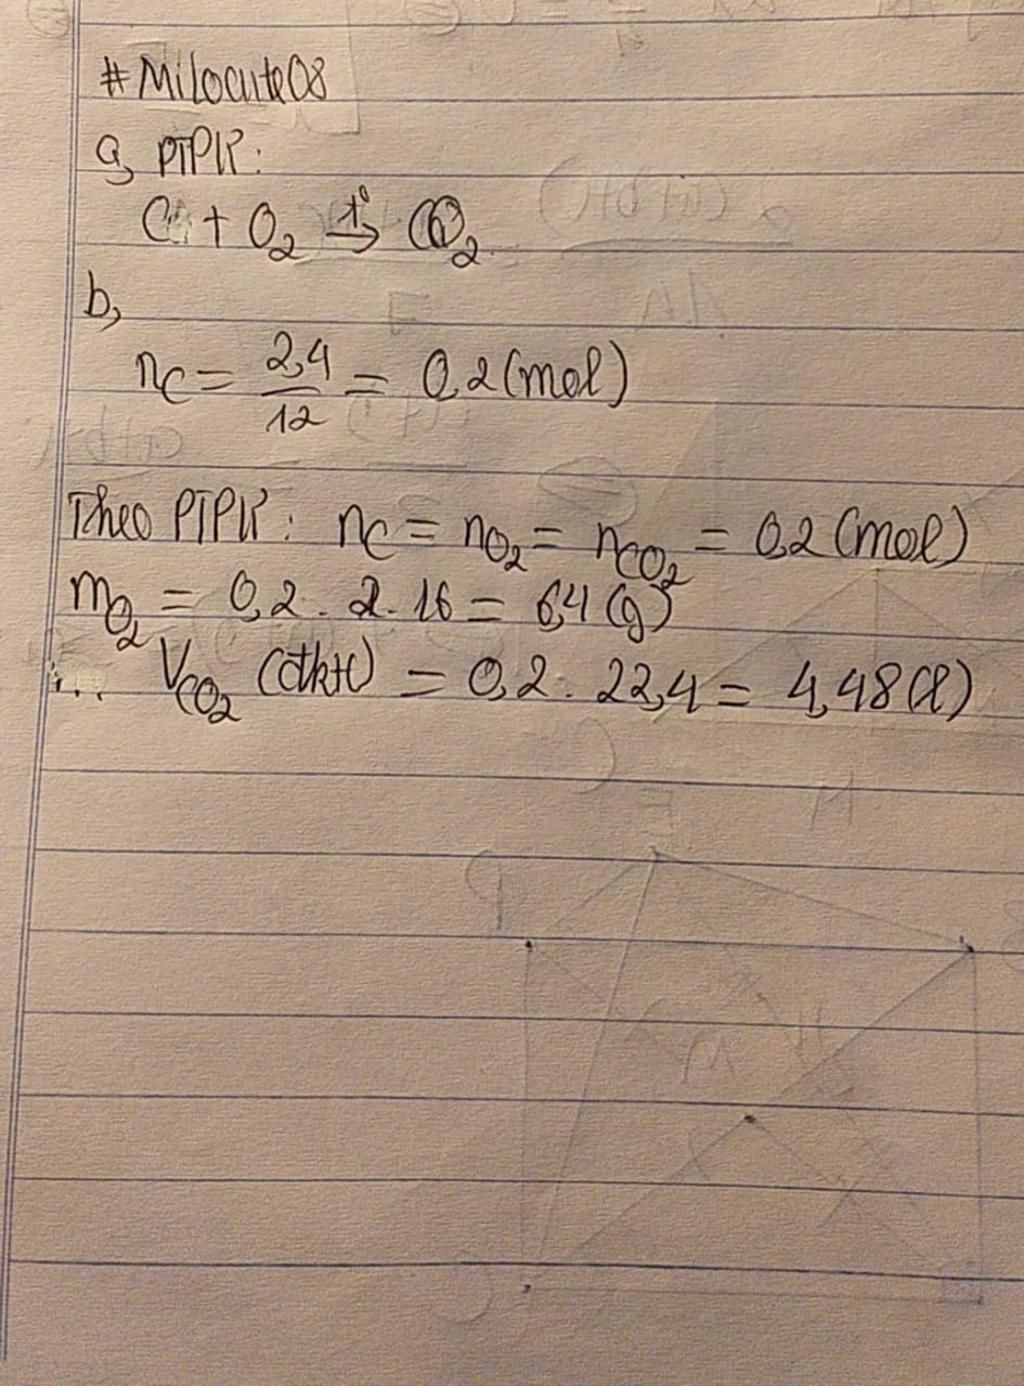 #MiLocute08
a, PTPƯ:
C + O₂ t°→ CO₂
b,
nC = 2,4/12 = 0,2 (mol)
Theo PTPƯ: nC = nO₂ = nCO₂ = 0,2 (mol)
mO₂ = 0,2 . 2 . 16 = 6,4 (g)
VCO₂ (đktc) = 0,2 . 22,4 = 4,48 (l)